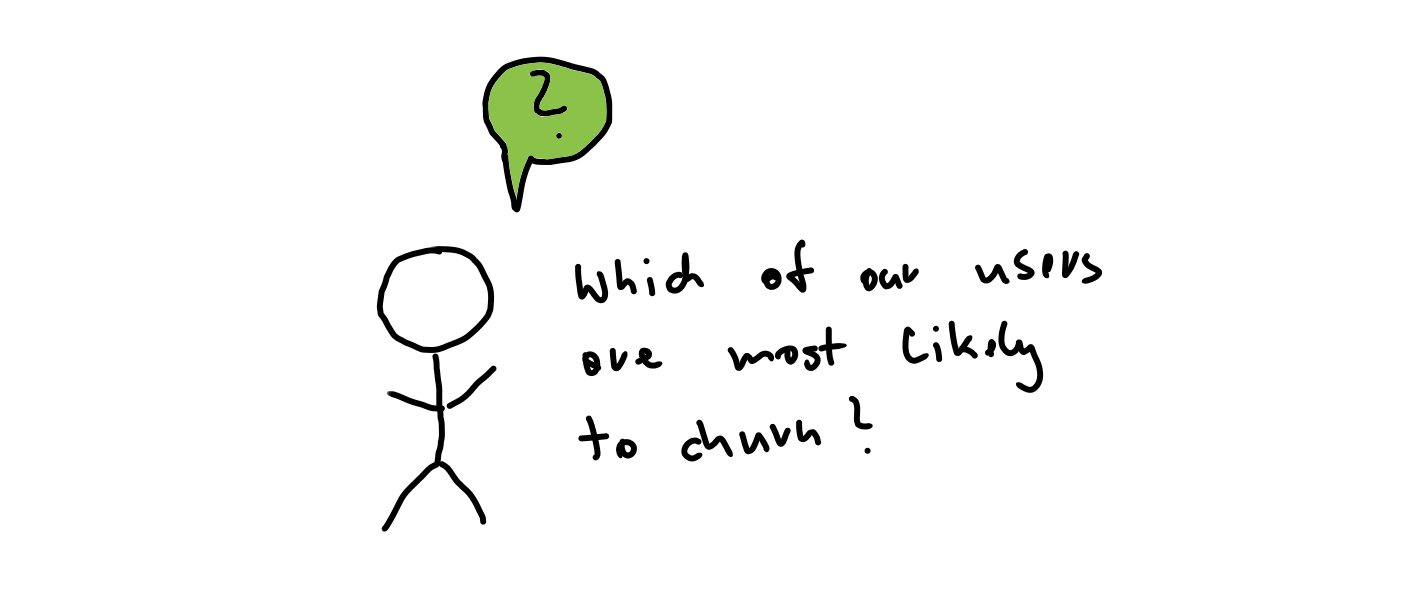 ?
Which of our users
are most likely
to churn?